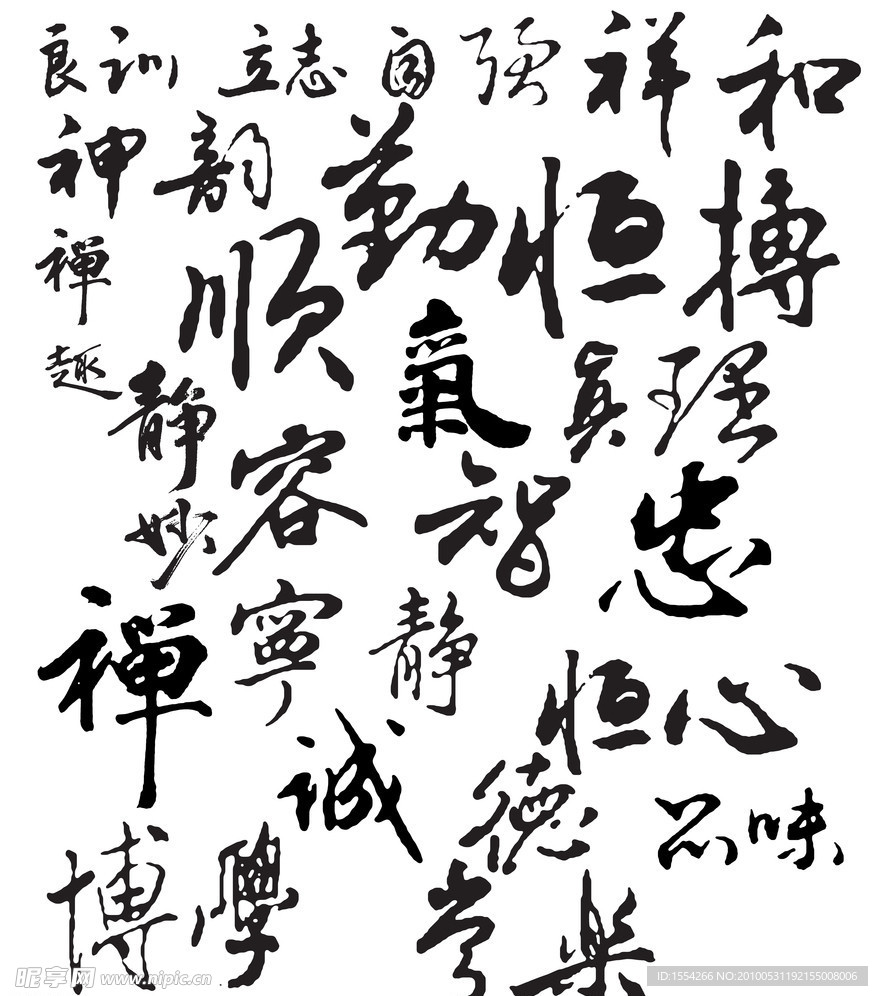 良训 立志 自强 祥和
神韵 勤 恒 搏
禅
顺
氣 真理
趣
静
容 智 忠
妙
禪 寧 静
恒心
诚
德
品味
博學
常樂
昵享网 www.nipic.cn
ID:1554266 NO:20100531192155008006